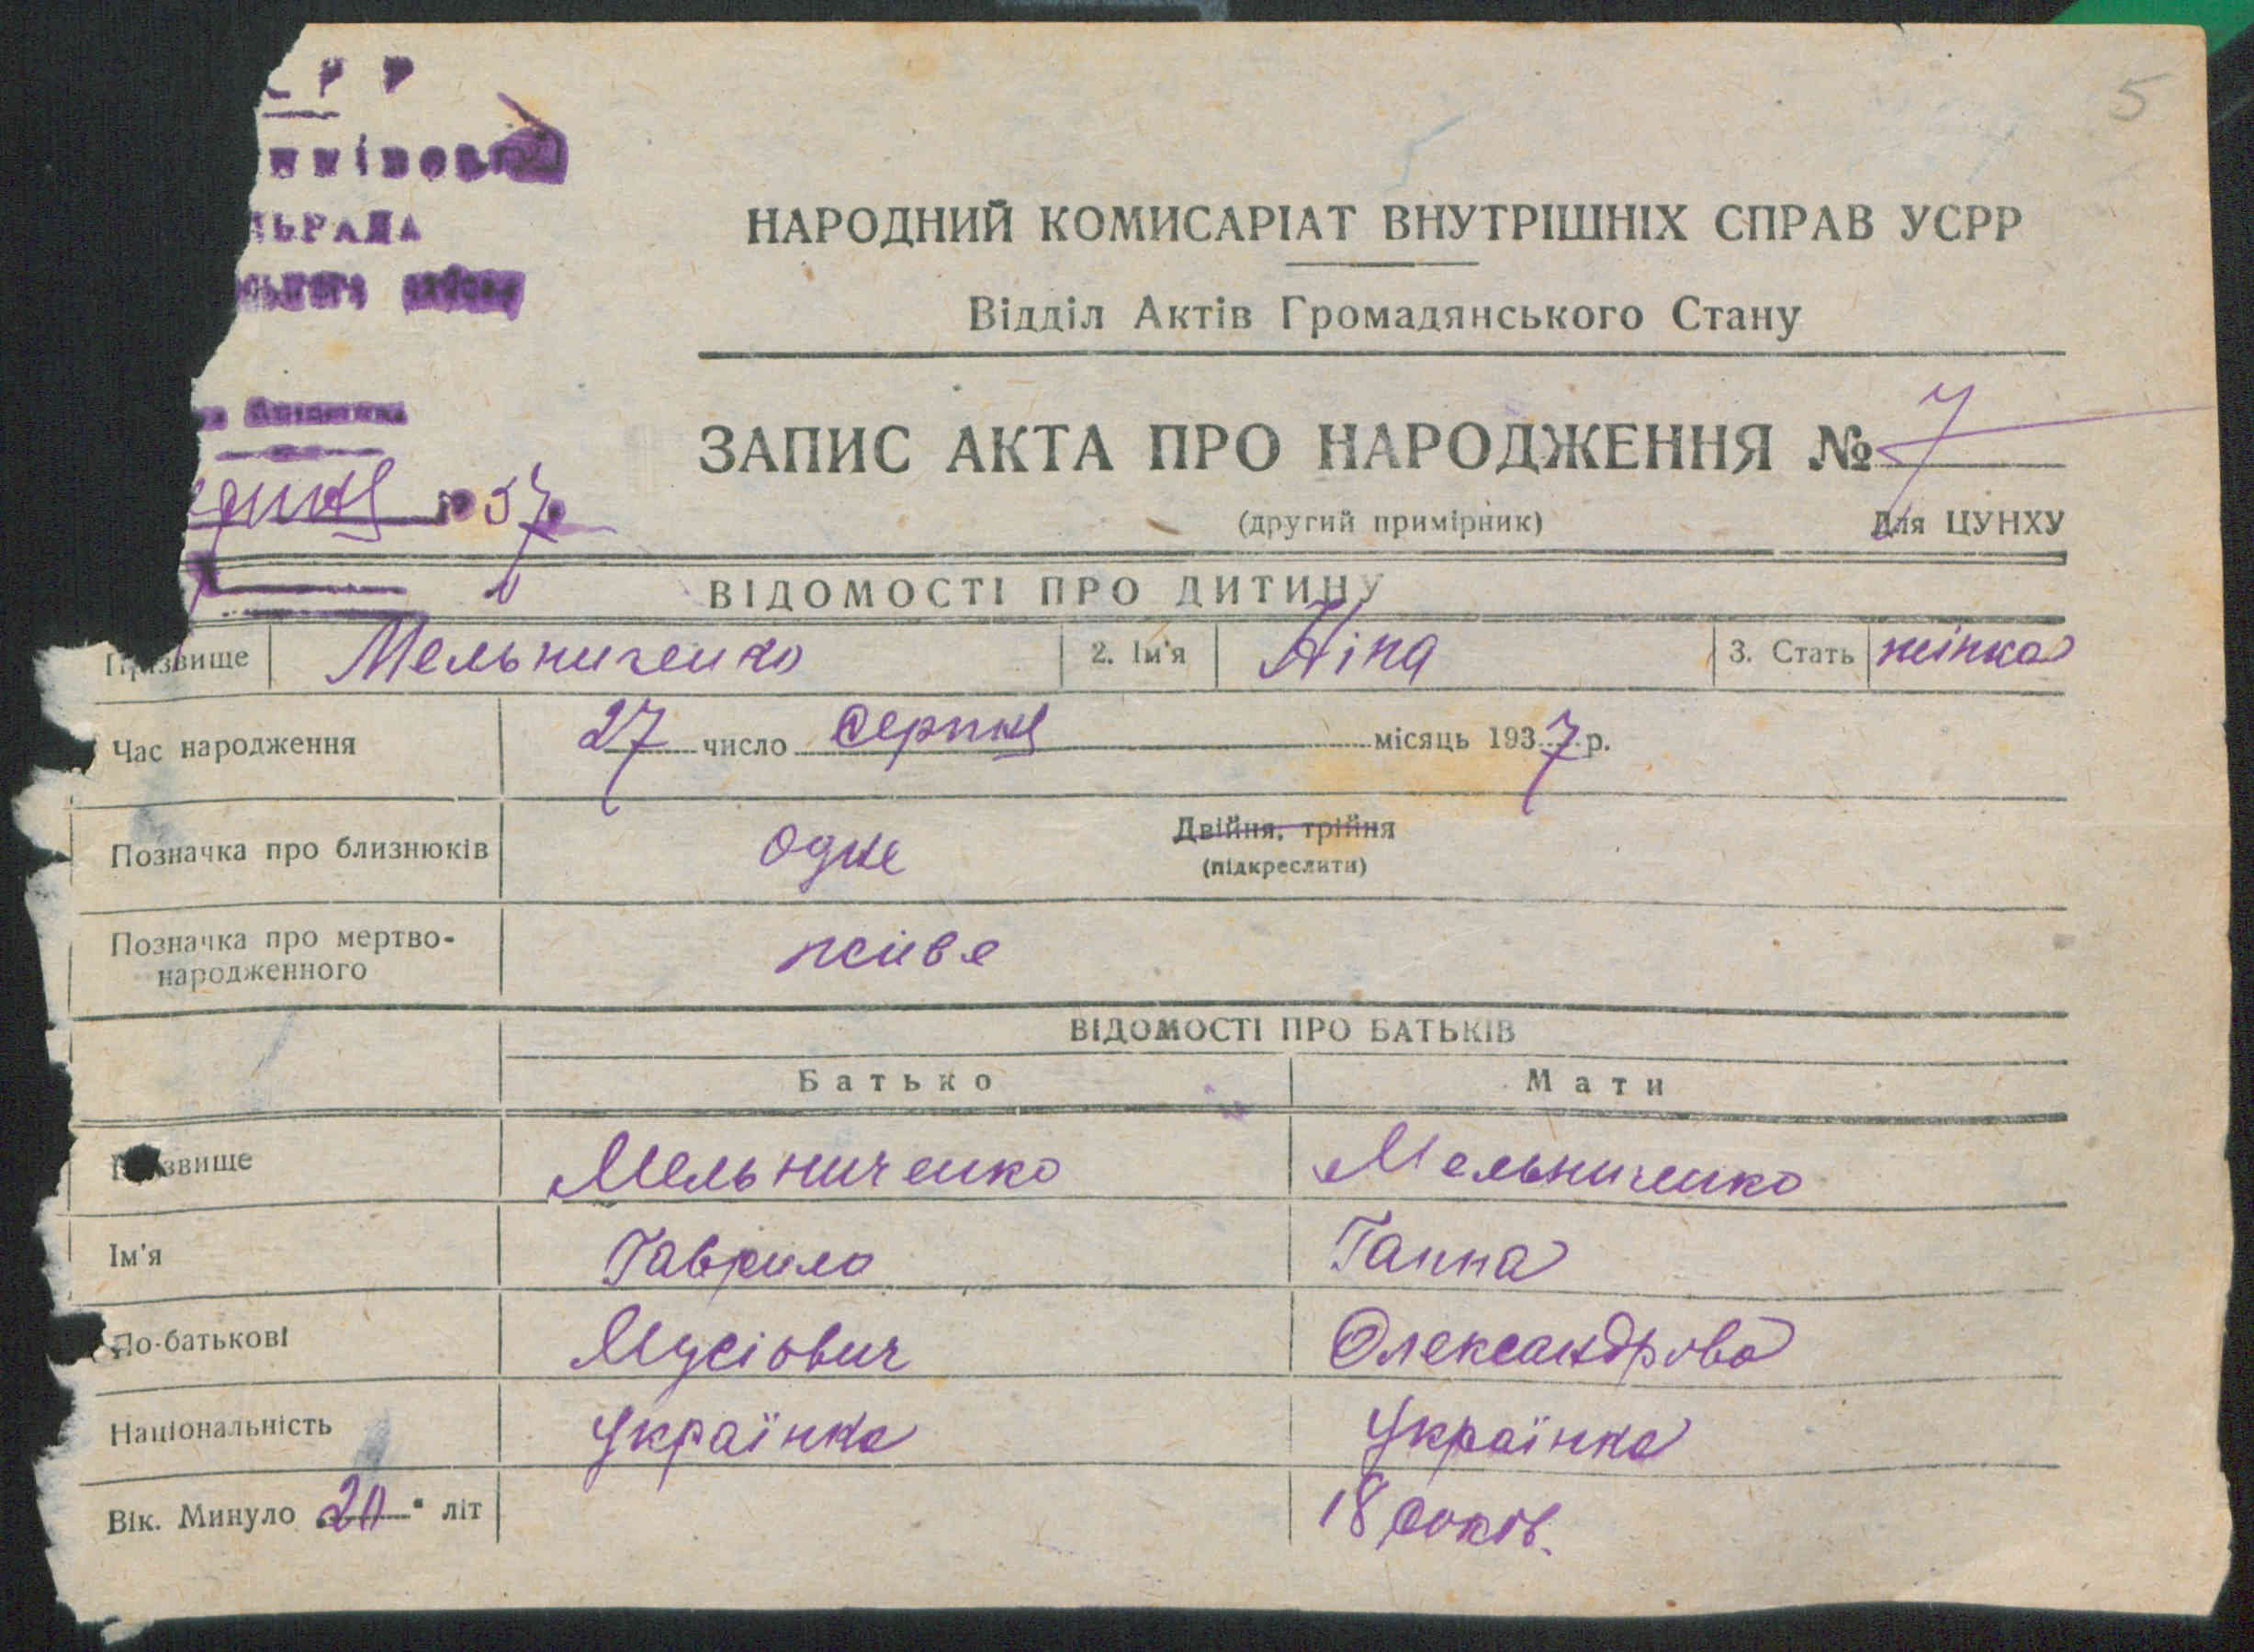 5
РР
ЬРАДА
НАРОДНИЙ КОМИСАРІАТ ВНУТРІШНІХ СПРАВ УСРР
Відділ Актів Громадянського Стану
ЗАПИС АКТА ПРО НАРОДЖЕННЯ № 7
37
(другий примірник) Для ЦУНХУ
ВІДОМОСТІ ПРО ДИТИНУ
Призвище Мельниченко 2. Ім'я Ніна 3. Стать жінка
Час народження 27 число серпня місяць 1937 р.
Позначка про близнюків одне Двійня, трійня
(підкреслити)
Позначка про мертво-
народженного живе
ВІДОМОСТІ ПРО БАТЬКІВ
Батько Мати
Призвище Мельниченко Мельниченко
Ім'я Гаврило Ганна
По-батькові Мусіович Олександрова
Національність Українка Українка
Вік. Минуло 20 літ 18 років.